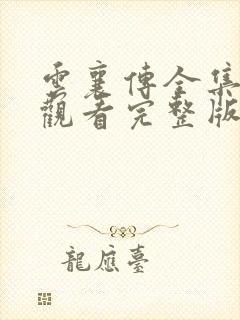 雲襄傳全集
觀看完整版
龍應臺